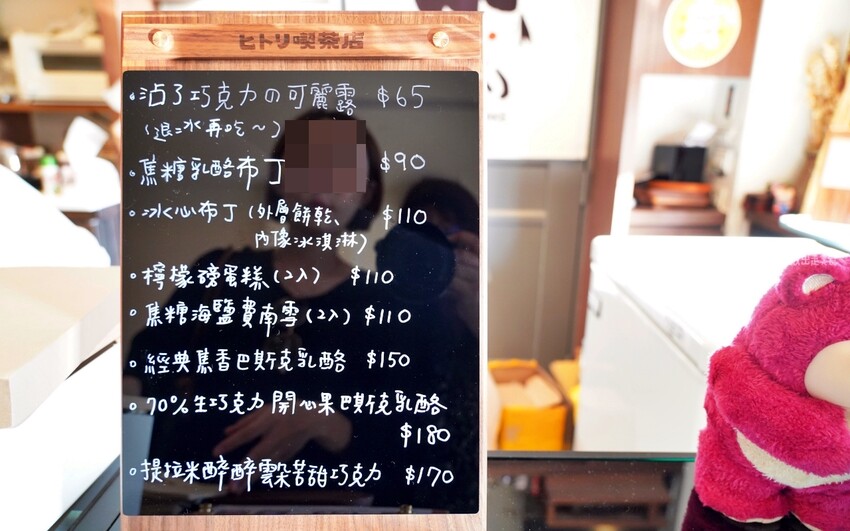 ヒトリ喫茶店
·沾了巧克力の可麗露 $65
(退冰再吃~)
·焦糖乳酪布丁 $90
·冰心布丁(外層餅乾、 $110
內像冰淇淋)
·檸檬磅蛋糕(2入) $110
·焦糖海鹽費南雪(2入) $110
·經典焦香巴斯克乳酪 $150
·70%生巧克力開心果巴斯克乳酪
$180
·提拉米醉醉雲朵苦甜巧克力 $170